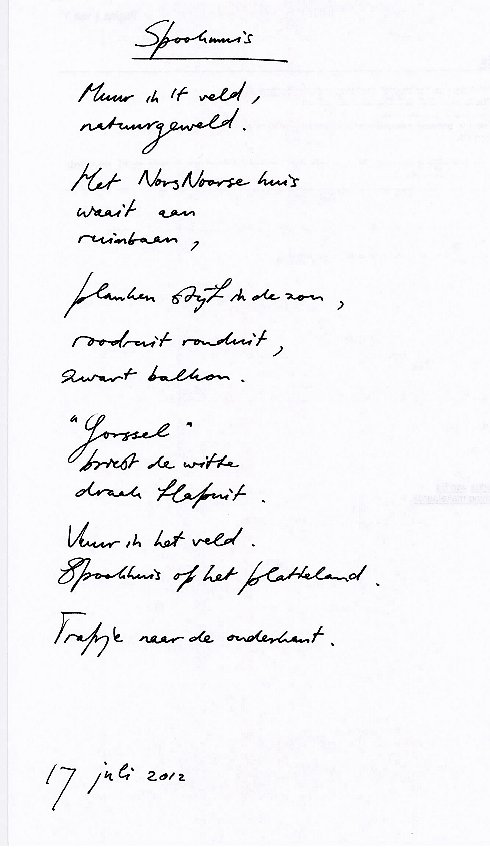 Spookhuis
Muur in 't veld,
natuurgeweld.
Het NorsNoorse huis
waait aan
ruimbaan,
planken stijf in de zon,
roodruit ronduit,
zwart balkon.
"Gorssel"
briest de witte
draak flapuit.
Vuur in het veld.
Spookhuis op het platteland.
Trapje naar de onderkant.
17 juli 2012